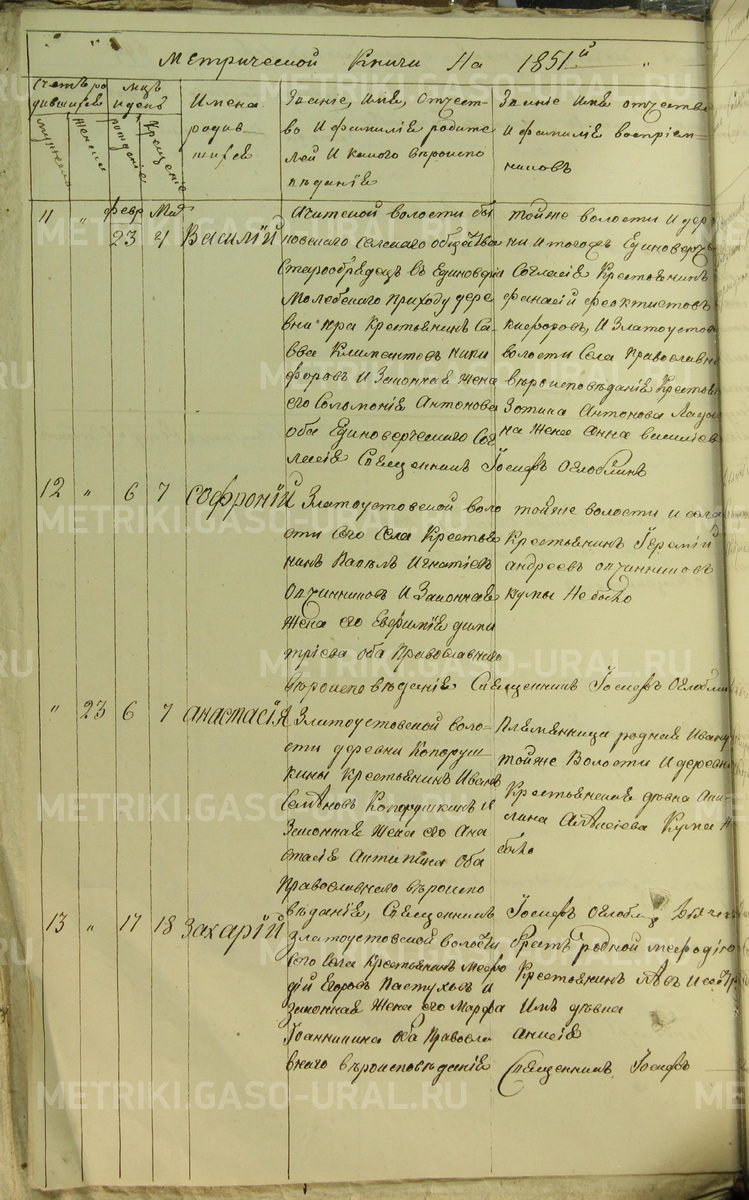 Метрической Книги На 1851й
Счетъ ро
дившихся
мужеска
женска
мць
и день
рожденіе
крещеніе
Имена
родив
шихся
Званіе, Имя, Отчест-
во И фамиліе родите
лей И какого вѣроиспо
вѣданіе
Званіе Имя отчество
И фамиліе воспріем-
никовъ
11 „ февр 23 4 Василій
Ачитской волости Бы
ковскаго селскаго общества
Старообрядецъ въ Единоверіи
Молебскаго Приходу дере
вни Ира Крестьянинъ Са
ва Климентовъ Ники
форовъ И Законная Жена
его Соломоніе Антонова
оба Единоверческаго Сог
ласіе Священникъ Іосифъ Оглоблинъ
тойже волости И дер
Согласіе Крестьянинъ
феоктистовъ
кифоровъ, И Златоустов
волости Села Православна
вѣроисповѣданіе Крестьян
Зотика Антонова
на Жена Анна василіев
12 „ 6 7 Софроній
Златоустовской воло
сти Сего Села Крестья
нинъ Павелъ Игнатіевъ
Овчинниковъ И Законная
Жена его Евфиміе дими
тріева оба Православнаго
вѣроисповѣданіе Священникъ Іосифъ Оглоблин
тойже волости и села
Крестьянинъ Іеремій
андреевъ овчинниковъ
кумы Не было
„ 23 6 7 Анастасія
Златоустовской воло-
сти деревни Копоруш-
кины Крестьянинъ Иванъ
Семѣновъ Копорушкинъ И
Законная Жена его Ана
стасіе Антипина Оба
Православнаго вѣроиспо
вѣданіе, Священникъ Іосифъ Оглобл
Племянница родная Ивану
тойже Волости И деревни
Крестьянская дѣвка Аки-
лина Алѣксіева Кума Н
было
13 „ 17 18 Захарій
Златоустовской волости
Сего Села Крестьянинъ Мефо
дій Егоровъ Пастуховъ И
законная Жена его Марфа
Іоанникина оба Правосла
внаго вѣроисповѣданіе
братъ родной Мефодію
Крестьянинъ
дѣвка
Священникъ Іосифъ
METRIKI.GASO-URAL.RU